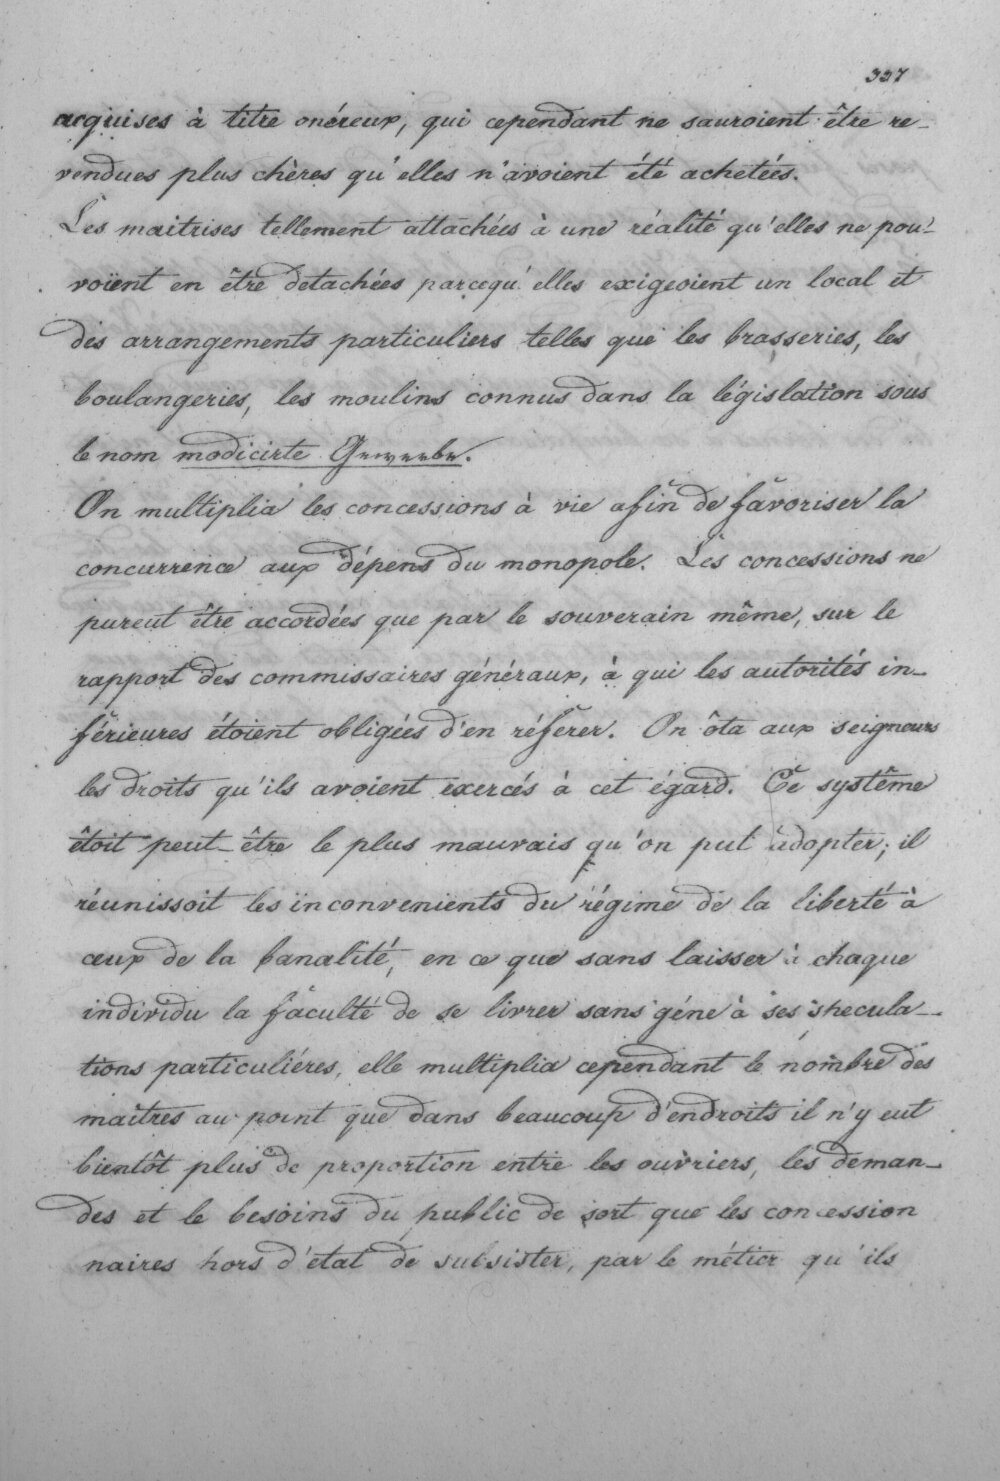 337
acquises à titre onéreux, qui cependant ne sauroient être re-
vendues plus chères qu'elles n'avoient été achetées.
Les maitrises tellement attachées à une réalité qu'elles ne pou-
voient en être detachées parcequ'elles exigeoient un local et
des arrangements particuliers telles que les brasseries, les
boulangeries, les moulins connus dans la législation sous
le nom modicirte Gewerbe.
On multiplia les concessions à vie afin de favoriser la
concurrence aux dépens du monopole. Les concessions ne
purent être accordées que par le souverain même, sur le
rapport des commissaires généraux, à qui les autorités in-
férieures étoient obligées d'en référer. On ôta aux seigneurs
les droits qu'ils avoient exercés à cet égard. Ce système
étoit peut-être le plus mauvais qu'on put adopter; il
réunissoit les inconvenients du régime de la liberté à
ceux de la banalité, en ce que sans laisser à chaque
individu la faculté de se livrer sans géne à ses specula-
tions particuliéres, elle multiplia cependant le nombre des
maitres au point que dans beaucoup d'endroits il n'y eut
bientôt plus de proportion entre les ouvriers, les deman-
des et le besoins du public de sort que les concession
naires hors d'etat de subsister, par le métier qu'ils